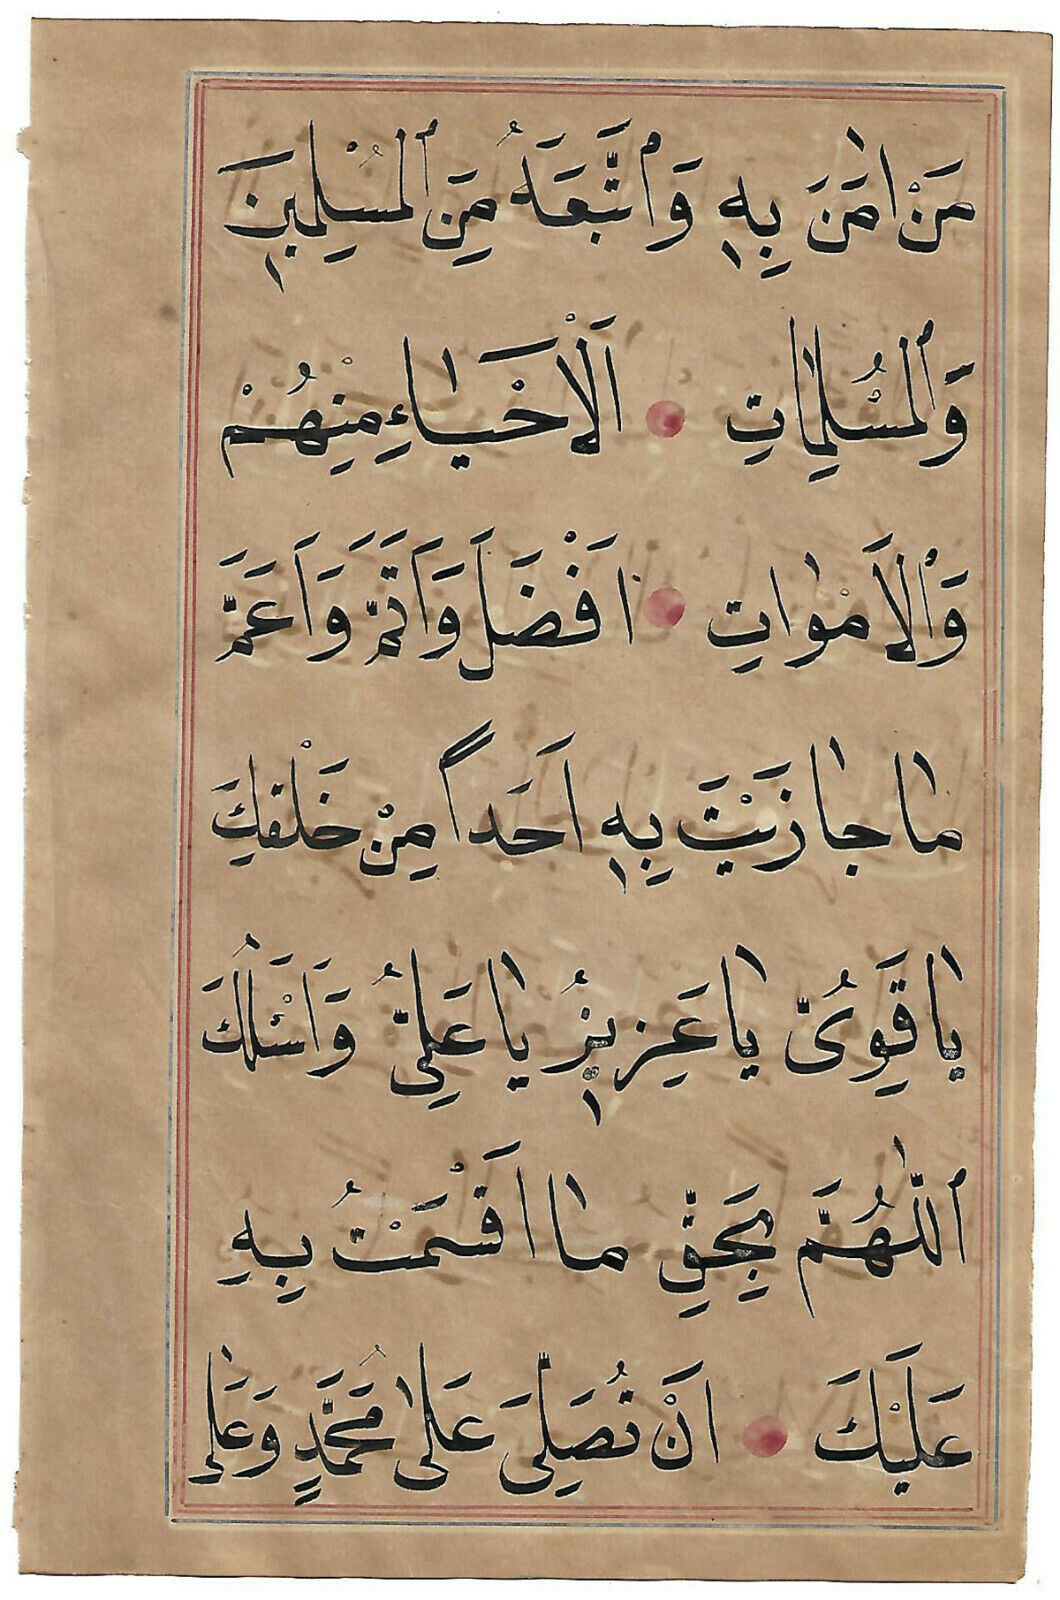 مَنْ اٰمَنَ بِهٖ وَاتَّبَعَهُ مِنَ الْمُسْلِمٖينَ
وَالْمُسْلِمَاتِ اَلْاَحْيَاءِ مِنْهُمْ
وَالْاَمْوَاتِ اَفْضَلَ وَاَتَمَّ وَاَعَمَّ
مَا جَازَيْتَ بِهٖ اَحَداً مِنْ خَلْقِكَ
يَا قَوِىُّ يَا عَزٖيزُ يَا عَلِىُّ وَاَسْئَلُكَ
اَللّٰهُمَّ بِحَقِّ مَا اَقْسَمْتُ بِهٖ
عَلَيْكَ اَنْ تُصَلِّىَ عَلٰى مُحَمَّدٍ وَعَلٰى